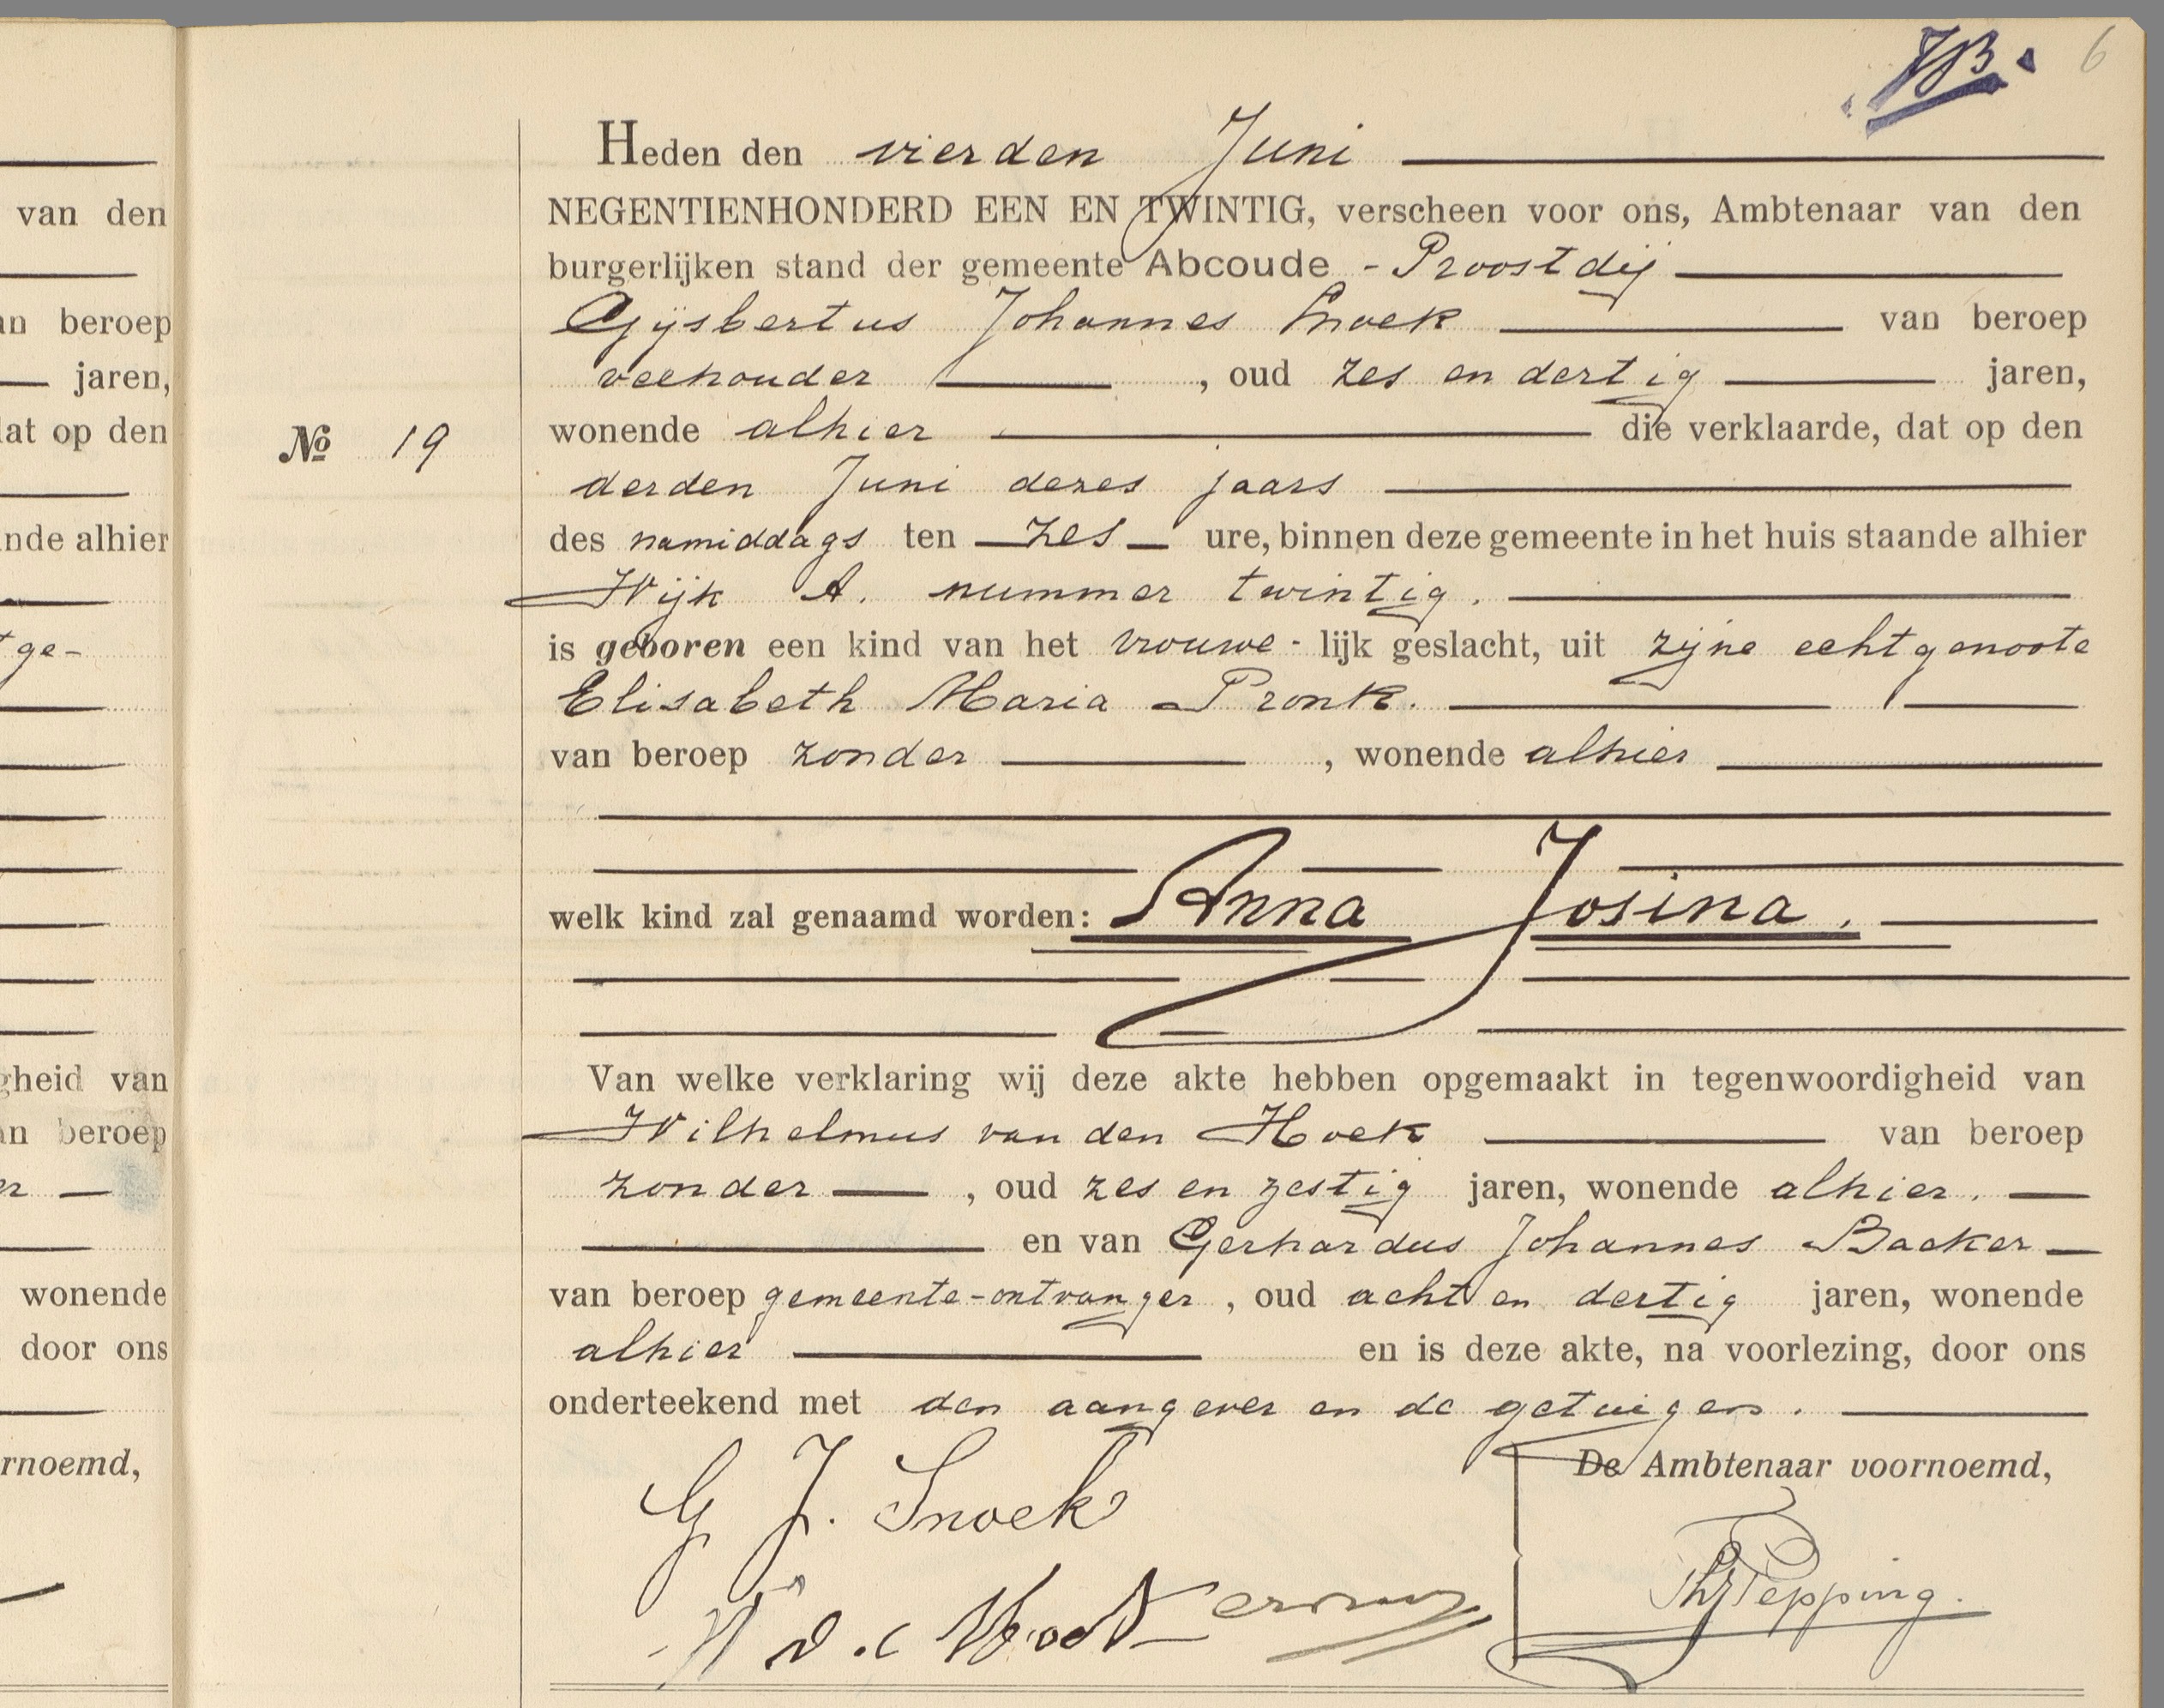 JB. 6
Heden den vierden Juni
NEGENTIENHONDERD EEN EN TWINTIG, verscheen voor ons, Ambtenaar van den
burgerlijken stand der gemeente Abcoude - Proostdij
Gijsbertus Johannes Snoek van beroep
veehouder , oud zes en dertig jaren,
wonende alhier die verklaarde, dat op den
No 19
derden Juni dezes jaars
des namiddags ten zes ure, binnen deze gemeente in het huis staande alhier
Wijk A. nummer twintig.
is geboren een kind van het vrouwe - lijk geslacht, uit zijne echtgenoote
Elisabeth Maria Pronk.
van beroep zonder , wonende alhier
welk kind zal genaamd worden: Anna Josina.
Van welke verklaring wij deze akte hebben opgemaakt in tegenwoordigheid van
Wilhelmus van den Hoek van beroep
zonder , oud zes en zestig jaren, wonende alhier.
en van Gerhardus Johannes Backer
van beroep gemeente-ontvanger , oud acht en dertig jaren, wonende
alhier en is deze akte, na voorlezing, door ons
onderteekend met den aangever en de getuigen.
De Ambtenaar voornoemd,
G J. Snoek
Pepping.
van den
an beroep
jaren,
lat op den
ande alhier
ge-
gheid van
an beroep
wonende
door ons
rnoemd,